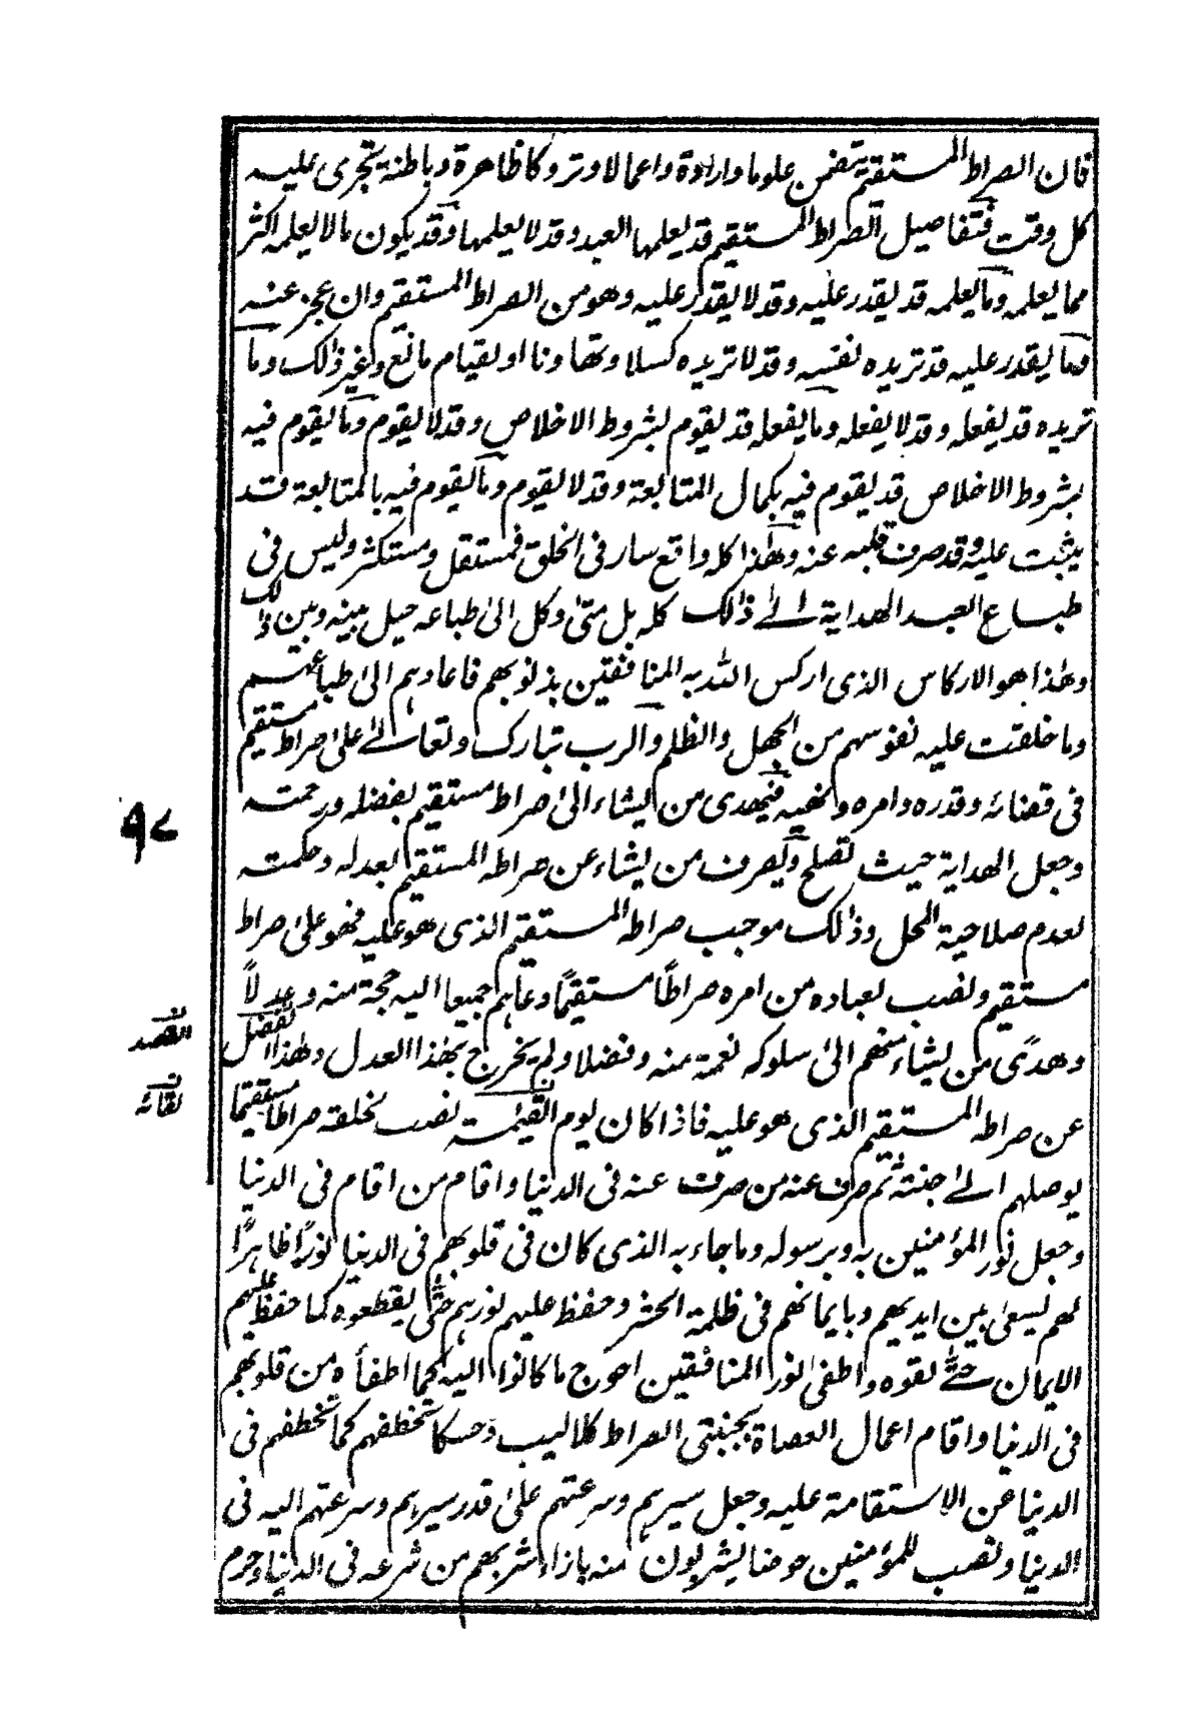 فان الصراط المستقيم يتضمن علوما وارادة واعمالا وتروكا ظاهرة وباطنة تجرى عليه
كل وقت فتفاصيل الصراط المستقيم قد يعلمها العبد وقد لا يعلمها وقد يكون مالا يعلمه اكثر
مما يعلمه وما يعلمه قد يقدر عليه وقد لا يقدر عليه وهو من الصراط المستقيم وان عجز عنه
وما يقدر عليه قد تريده نفسه وقد لا تريده كسلا وتهاونا او لقيام مانع وغير ذالك وما
تريده قد يفعله وقد لا يفعله وما يفعله قد يقوم بشروط الاخلاص وقد لا يقوم وما يقوم فيه
بشروط الاخلاص قد يقوم فيه بكمال المتابعة وقد لا يقوم وما يقوم فيه بالمتابعة قد
يثبت عليه وقد صرف قلبه عنه وهذا كله واقع سار فى الخلق فمستقل ومستكثر وليس فى
طباع العبد الهداية الى ذالك كله بل متى وكل الى طباعه حيل بينه وبين ذالك
وهذا هو الاركاس الذى اركس الله به المنافقين بذنوبهم فاعادهم الى طباعهم
وما خلقت عليه نفوسهم من الجهل والظلم والرب تبارك وتعالى على صراط مستقيم
فى قضائه وقدره وامره ونهيه فيهدى من يشاء الى صراط مستقيم بفضله ورحمته
وجعل الهداية حيث تصلح ويصرف من يشاء عن صراطه المستقيم بعدله وحكمته
لعدم صلاحية المحل وذالك موجب صراطه المستقيم الذى هو عليه فهو على صراط
مستقيم ونصب لعباده من امره صراطًا مستقيمًا دعاهم جميعا اليه حجة منه وعدلًا
وهدى من يشاء منهم الى سلوكه نعمة منه وفضلا ولم يخرج بهذا العدل وهذا الفضل
عن صراطه المستقيم الذى هو عليه فاذا كان يوم القيمة نصب لخلقه صراطا مستقيما
يوصلهم الى جنته ثم صرف عنه من صرف عنه فى الدنيا واقام من اقام فى الدنيا
وجعل نور المؤمنين به وبرسوله وما جاء به الذى كان فى قلوبهم فى الدنيا نورًا ظاهرًا
لهم يسعى بين ايديهم وبايمانهم فى ظلمة الحشر وحفظ عليهم نورهم حتى يقطعوه كما حفظ عليهم
الايمان حتى لقوه واطفى نور المنافقين احوج ما كانوا اليه كما اطفأه من قلوبهم
فى الدنيا واقام اعمال العصاة بجنبتى الصراط كلاليب وحسكا تخطفهم كما تخطفهم فى
الدنيا عن الاستقامة عليه وجعل سيرهم وسرعتهم على قدر سيرهم وسرعتهم اليه فى
الدنيا ونصب للمؤمنين حوضا يشربون منه بازاء شربهم من شرعه فى الدنيا وحرم
القصد
لقائه